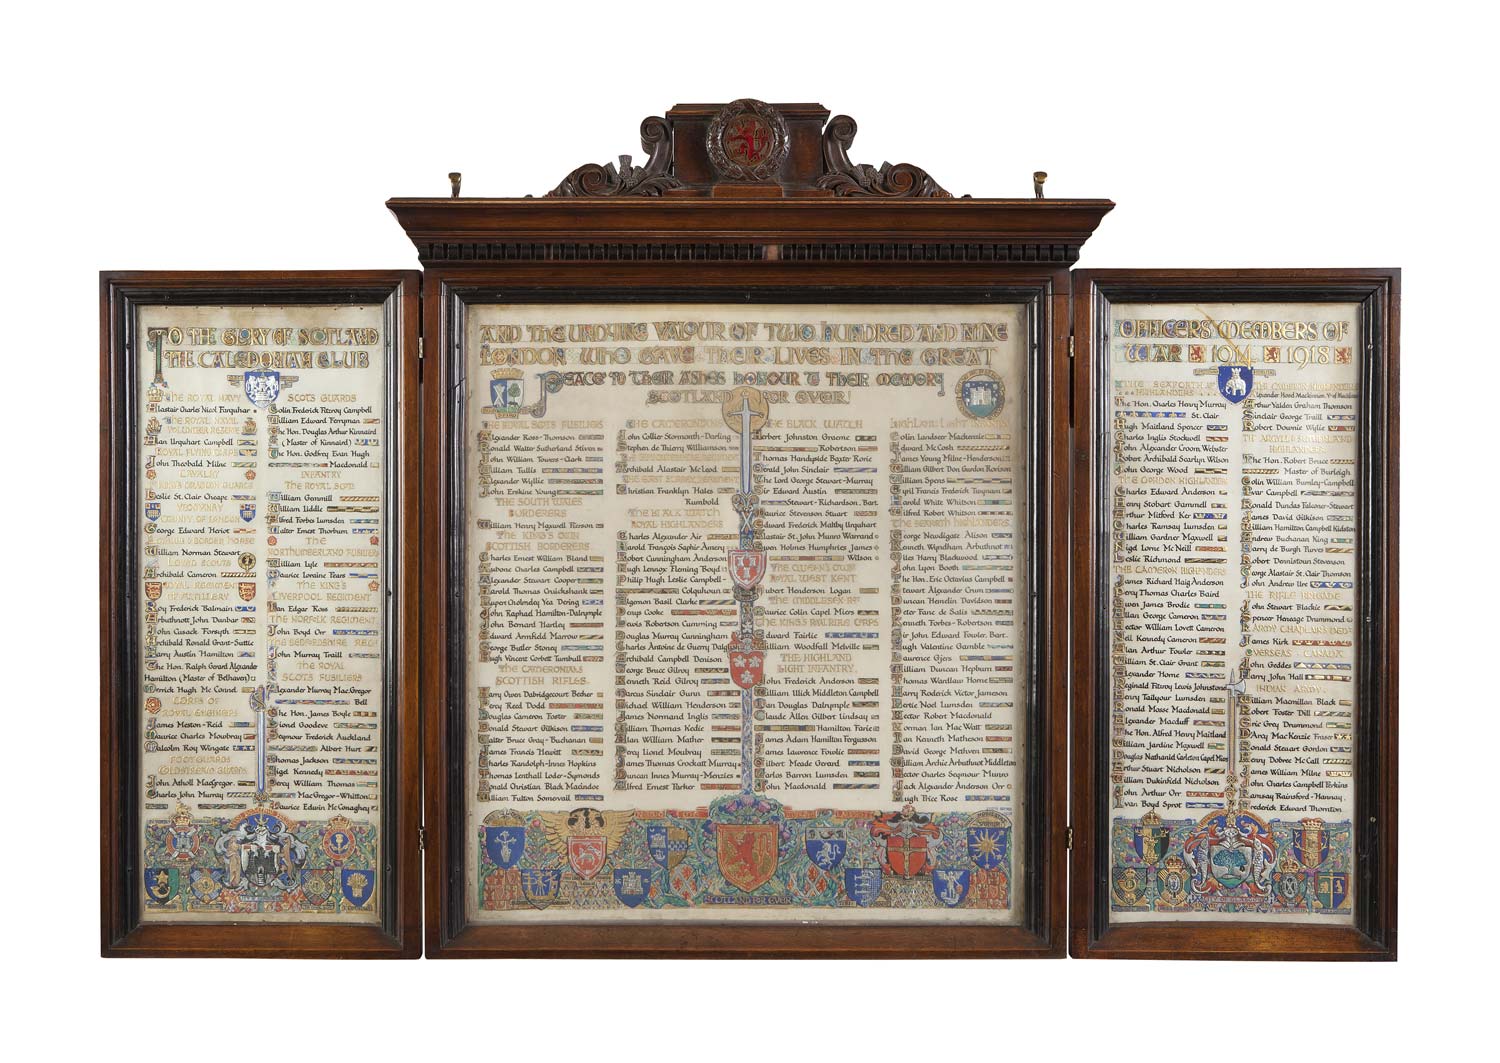 TO THE GLORY OF SCOTLAND
THE CALEDONIAN CLUB
AND THE UNDYING VALOUR OF TWO HUNDRED AND NINE
LONDON WHO GAVE THEIR LIVES IN THE GREAT
OFFICERS MEMBERS OF
WAR 1914 1918
PEACE TO THEIR ASHES HONOUR TO THEIR MEMORY
SCOTLAND FOR EVER!
THE ROYAL NAVY
Alastair Charles Nicol Farquhar
THE ROYAL NAVAL
VOLUNTEER RESERVE
Ian Urquhart Campbell
ROYAL FLYING CORPS
John Theobald Milne
CAVALRY
KING'S DRAGOON GUARDS
Leslie St. Clair Cheape
YEOMANRY
COUNTY OF LONDON
George Edward Heriot
LOTHIANS & BORDER HORSE
William Norman Stewart
LOVAT SCOUTS
Archibald Cameron
ROYAL REGIMENT
OF ARTILLERY
Roy Frederick Balmain
Arbuthnott John Dunbar
John Cusack Forsyth
Archibald Ronald Grant-Suttie
Harry Austin Hamilton
The Hon. Ralph Gerard Alexander
Hamilton (Master of Belhaven)
Merrick Hugh Mc Connel
CORPS OF
ROYAL ENGINEERS
James Meston-Reid
Maurice Charles Moubray
Malcolm Roy Wingate
FOOT GUARDS
COLDSTREAM GUARDS
John Atholl MacGregor
Charles John Murray
SCOTS GUARDS
Colin Frederick Fitzroy Campbell
William Edward Ferryman
The Hon. Douglas Arthur Kinnaird
(Master of Kinnaird)
The Hon. Godfrey Evan Hugh
Macdonald
INFANTRY
THE ROYAL SCOTS
William Gemmill
William Liddle
Alfred Forbes Lumsden
Walter Ernest Thorburn
THE
NORTHUMBERLAND FUSILIERS
William Lyle
Maurice Loraine Tears
THE KING'S
LIVERPOOL REGIMENT
Ian Edgar Ross
THE NORFOLK REGIMENT
John Boyd Orr
THE BEDFORDSHIRE REGT.
John Murray Traill
THE ROYAL
SCOTS FUSILIERS
Alexander Murray MacGregor
Bell
The Hon. James Boyle
Lionel Goodeve
Seymour Frederick Auckland
Albert Hurt
Thomas Jackson
Nigel Kennedy
Percy William Thomas
MacGregor-Whitton
Maurice Edwin McConaghey
THE ROYAL SCOTS FUSILIERS
Alexander Ross-Thomson
Ronald Walter Sutherland Stiven
John William Towers-Clark
William Tullis
Alexander Wyllie
John Erskine Young
THE SOUTH WALES
BORDERERS
William Henry Maxwell Pierson
THE KING'S OWN
SCOTTISH BORDERERS
Aubone Charles Campbell
Alexander Stewart Cooper
Harold Thomas Cruickshank
Rupert Cholmeley Yea Dering
John Raphael Hamilton-Dalrymple
John Bernard Hartley
Edward Armfield Marrow
George Butler Stoney
Hugh Vincent Corbett Turnbull
THE CAMERONIANS
SCOTTISH RIFLES
Harry Owen Dabridgecourt Becher
Percy Reed Dodd
Douglas Cameron Foster
Donald Stewart Gilkison
Walter Bruce Gray-Buchanan
James Francis Hewitt
Charles Randolph-Innes Hopkins
Thomas Lenthall Loder-Symonds
Ronald Christian Black Macindoe
William Fulton Somervail
THE CAMERONIANS
John Collier Stormonth-Darling
Stephen de Thierry Williamson
Archibald Alastair McLeod
THE EAST SURREY REGIMENT
Christian Franklyn Hales
Rumbold
THE BLACK WATCH
ROYAL HIGHLANDERS
Charles Alexander Air
Harold François Saphir Amery
Robert Cunningham Anderson
Hugh Lennox Fleming Boyd
Philip Hugh Leslie Campbell
Colquhoun
Algernon Basil Clarke
Denys Cooke
Lewis Robertson Cumming
Douglas Murray Cunningham
Charles Antoine de Guerry Dalglish
Archibald Campbell Denison
George Bruce Gilroy
Kenneth Reid Gilroy
Marcus Sinclair Gunn
Michael William Henderson
James Normand Inglis
William Thomas Kedie
Alan William Mather
Percy Lionel Moubray
James Thomas Crockatt Murray
Duncan Innes Murray-Menzies
Alfred Ernest Parker
THE BLACK WATCH
Herbert Johnston Graeme
Robertson
Thomas Handyside Baxter Rorie
Gerald John Sinclair
The Lord George Stewart-Murray
Sir Edward Austin
Stewart-Richardson, Bart.
Maurice Stevens Stuart
Edward Frederick Maltby Urquhart
Alastair St. John Munro Warrand
Owen Holmes Humphries James
Wilson
THE QUEEN'S OWN
ROYAL WEST KENT
Hubert Henderson Logan
THE MIDDLESEX RT.
Maurice Colin Capel Miers
THE KING'S ROYAL RIFLE CORPS
Edward Fairlie
William Woodfall Melville
THE HIGHLAND
LIGHT INFANTRY
John Frederick Anderson
William Ulick Middleton Campbell
Ian Douglas Dalrymple
Claude Allen Gilbert Lindsay
Hamilton Farie
James Lawrence Fowlie
Gilbert Meade Gerard
James Adam Hamilton Fergusson
Carlos Barron Lumsden
John Macdonald
HIGHLAND LIGHT INFANTRY
Colin Landseer Mackenzie
Edward McCosh
James Young Milne-Henderson
William Gilbert Don Gurdon Rorison
William Spens
Cyril Francis Frederick Tugnam
Harold White Whitson
Alfred Robert Whitson
THE SEAFORTH HIGHLANDERS
George Newdigate Alison
Kenneth Wyndham Arbuthnot
Giles Harry Blackwood
John Lyon Booth
The Hon. Eric Octavius Campbell
Stewart Alexander Crum
Duncan Henelin Davidson
Peter Fane de Salis
Kenneth Forbes-Robertson
Sir John Edward Fowler, Bart.
Hugh Valentine Gamble
Laurence Gjers
William Duncan Hepburn
Thomas Wardlaw Home
Harry Roderick Victor Jameson
Bertie Noel Lumsden
Hector Robert Macdonald
Norman Ian Mac Watt
Ian Kenneth Matheson
David George Methven
William Archie Arbuthnot Middleton
Hector Charles Seymour Munro
Jack Alexander Anderson Orr
Hugh Price Rose
THE SEAFORTH
HIGHLANDERS
The Hon. Charles Henry Murray
St. Clair
Hugh Maitland Spencer
Charles Inglis Stockwell
John Alexander Croom Webster
Robert Archibald Scarlyn Wilson
John George Wood
THE GORDON HIGHLANDERS
Charles Edward Anderson
Henry Stobart Gammell
Arthur Mitford Ker
Charles Ramsay Lumsden
William Gardner Maxwell
Nigel Lorne McNeill
Leslie Richmond
THE CAMERON HIGHLANDERS
James Richard Haig Anderson
Percy Thomas Charles Baird
Ewen James Brodie
Allan George Cameron
Hector William Lovett Cameron
Neil Kennedy Cameron
Ian Arthur Fowler
William St. Clair Grant
Alexander Horne
Reginald Fitzroy Lewis Johnstone
Henry Tailyour Lumsden
Ronald Mosse Macdonald
Alexander Macduff
The Hon. Alfred Henry Maitland
William Jardine Maxwell
Douglas Nathaniel Carleton Capel Miers
Arthur Stuart Nicholson
William Dukinfield Nicholson
John Arthur Orr
Ivan Boyd Sprot
THE CAMERON HIGHLANDERS
Arthur Yalden Graham Thomson
Sinclair George Traill
Robert Downie Wylie
THE ARGYLL & SUTHERLAND
HIGHLANDERS
The Hon. Robert Bruce
Master of Burleigh
Colin William Burnley-Campbell
Ivar Campbell
Ronald Dundas Falconer-Stewart
James David Gilkison
William Hamilton Campbell Kidston
Andrew Buchanan King
Harry de Burgh Purves
Robert Dennistoun Stevenson
George Alastair St. Clair Thomson
John Andrew Ure
THE RIFLE BRIGADE
John Stewart Blackie
Spencer Heneage Drummond
ARMY CHAPLAINS DEPT.
James Kirk
OVERSEAS - CANADA
John Geddes
Harry John Hall
INDIAN ARMY
William Macmillan Black
Robert Foster Dill
Eric Grey Drummond
D'Arcy MacKenzie Fraser
Ronald Steuart Gordon
Henry Dobree McCall
James William Milne
John Charles Campbell Perkins
Ramsay Rainsford-Hannay
Frederick Edward Thornton
SCOTLAND FOR EVER
CITY OF GLASGOW